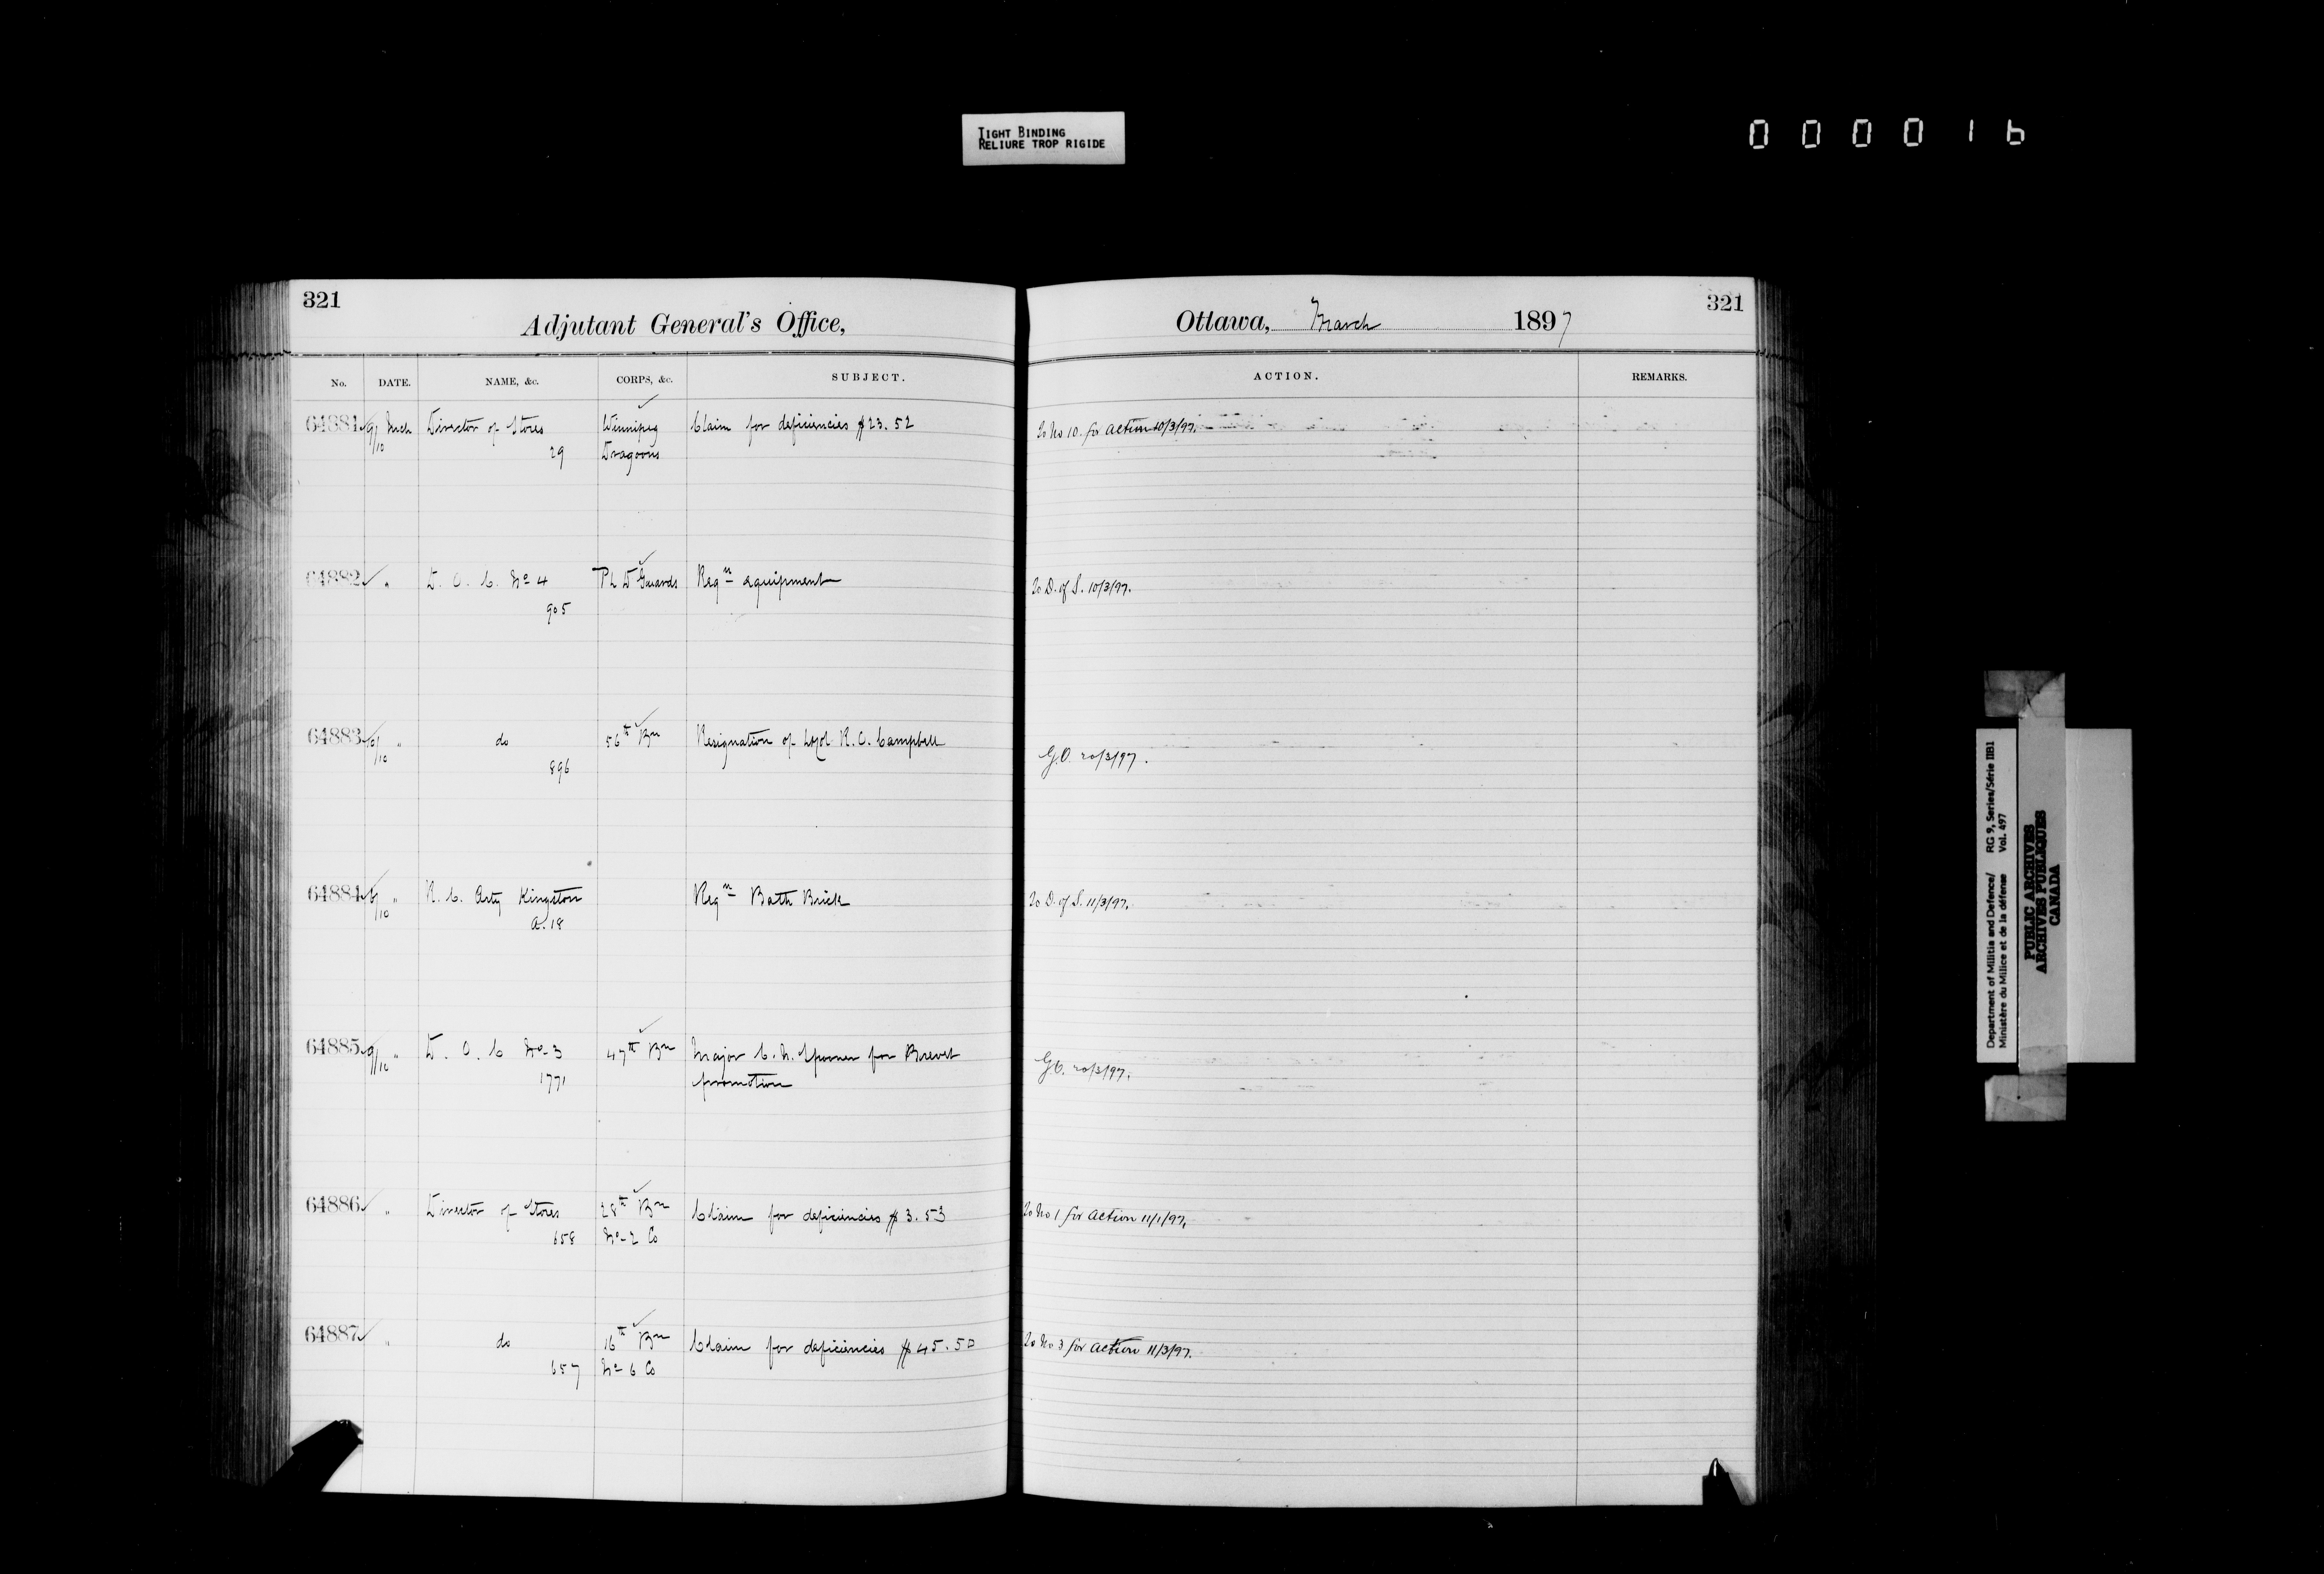 TIGHT BINDING
RELIURE TROP RIGIDE
0 0 0 0 1 6
321
Adjutant General's Office,
Ottawa, March 1897
321
No. DATE. NAME, &c. CORPS, &c. SUBJECT. ACTION. REMARKS.
64881 9/10 Mch Director of Stores Winnipeg Claim for deficiencies $23.52 To No 10. for action 10/3/97.
29 Dragoons
64882 " D. O. C. No 4 P L D Guards Reqn equipment To D. of S. 10/3/97.
905
64883 10/10 " do 56th Bn Resignation of Lt Col R. C. Campbell G.O. 20/3/97.
896
64884 6/10 " R. C. Arty Kingston Reqn Bath Brick To D. of S. 11/3/97.
A. 18
64885 9/10 " D. O. C No 3 47th Bn Major Spooner for Brevet 20/3/97.
1771 promotion
64886 " Director of Stores 28th Bn Claim for deficiencies $3.53 To No 1 for action 11/1/97.
658 No 2 Co
64887 " do 16th Bn Claim for deficiencies $45.50 To No 3 for action 11/3/97.
657 No 6 Co
Department of Militia and Defence/ RG 9, Series/Série IIB1
Ministère du Milice et de la défense Vol. 497
PUBLIC ARCHIVES
ARCHIVES PUBLIQUES
CANADA